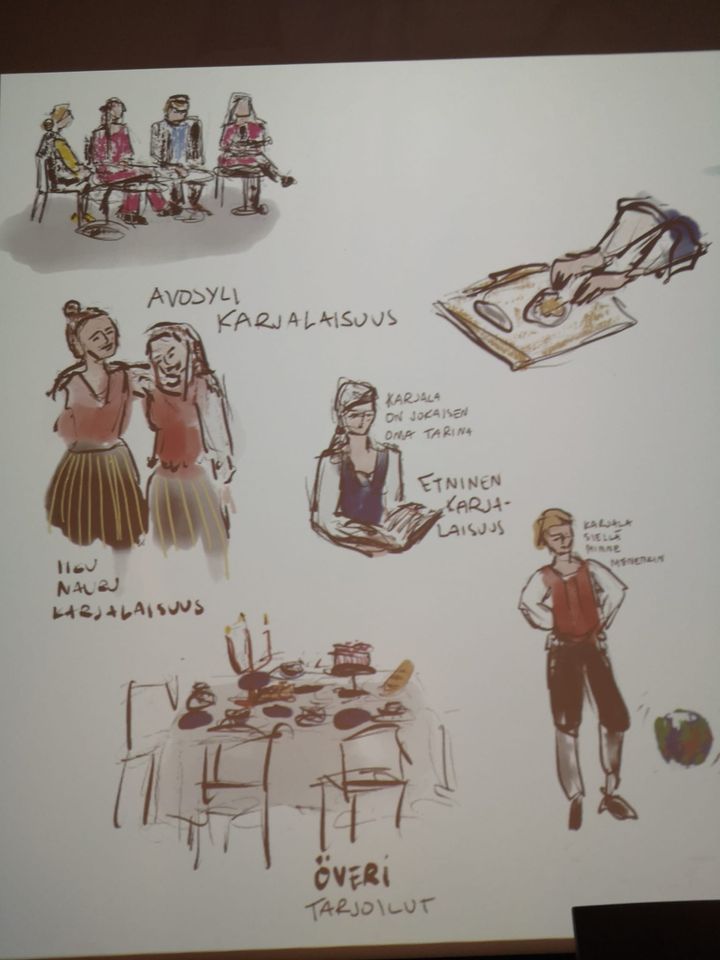 AVOSYLI
KARJALAISUUS
KARJALA
ON JOKAISEN
OMA TARINA
ETNINEN
KARJA-
LAISUUS
KARJALA
SIELLÄ
MINNE
NAURU
KARJALAISUUS
ÖVERI
TARJOILUT